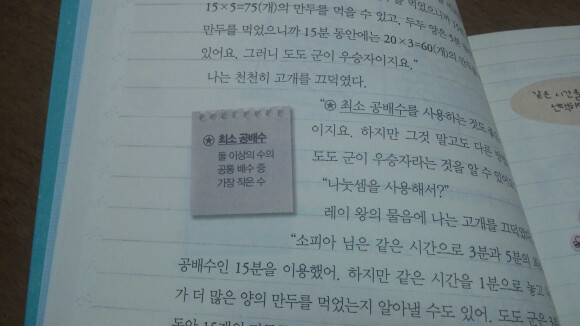 15×5=75(개)의 만두를 먹을 수 있고, 두두 양은 5분
만두를 먹었으니까 15분 동안에는 20×3=60(개)의
있어요. 그러니 도도 군이 우승자이지요.”
나는 천천히 고개를 끄덕였다.
“최소 공배수를 사용하는 것도
이지요. 하지만 그것 말고도 다른
도도 군이 우승자라는 것을 알 수
“나눗셈을 사용해서?”
레이 왕의 물음에 나는 고개를 끄덕였
“소피아 님은 같은 시간으로 3분과 5분의
공배수인 15분을 이용했어. 하지만 같은 시간을 1분으로 놓고
가 더 많은 양의 만두를 먹었는지 알아낼 수도 있어. 도도 군은
최소 공배수
둘 이상의 수의
공통 배수 중
가장 작은 수
같은 시간을